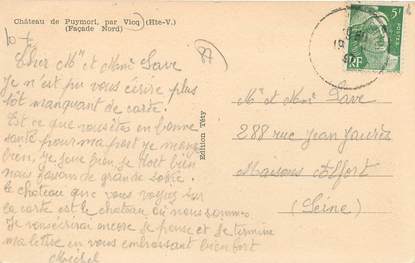 Château de Puymori, par Vicq (Hte-V.)
(Façade Nord)
Cher Mr et Mme Save
Je n'est pu vous écrire plus
tôt manquant de carte.
Est ce que vous êtes en bonne
santé pour ma part je mange
bien, je joue bien je dort bien
mais faison de grande
le chateau que vous voyez sur
la carte est le chateau où nous sommes
Je vous écrirai encore je pense et je termine
ma lettre en vous embrassant bien fort
Michel
Edition Téty
5F
POSTES
RF
Mr et Mme Save
288 rue Jean Jaurès
Maisons Alfort
(Seine)